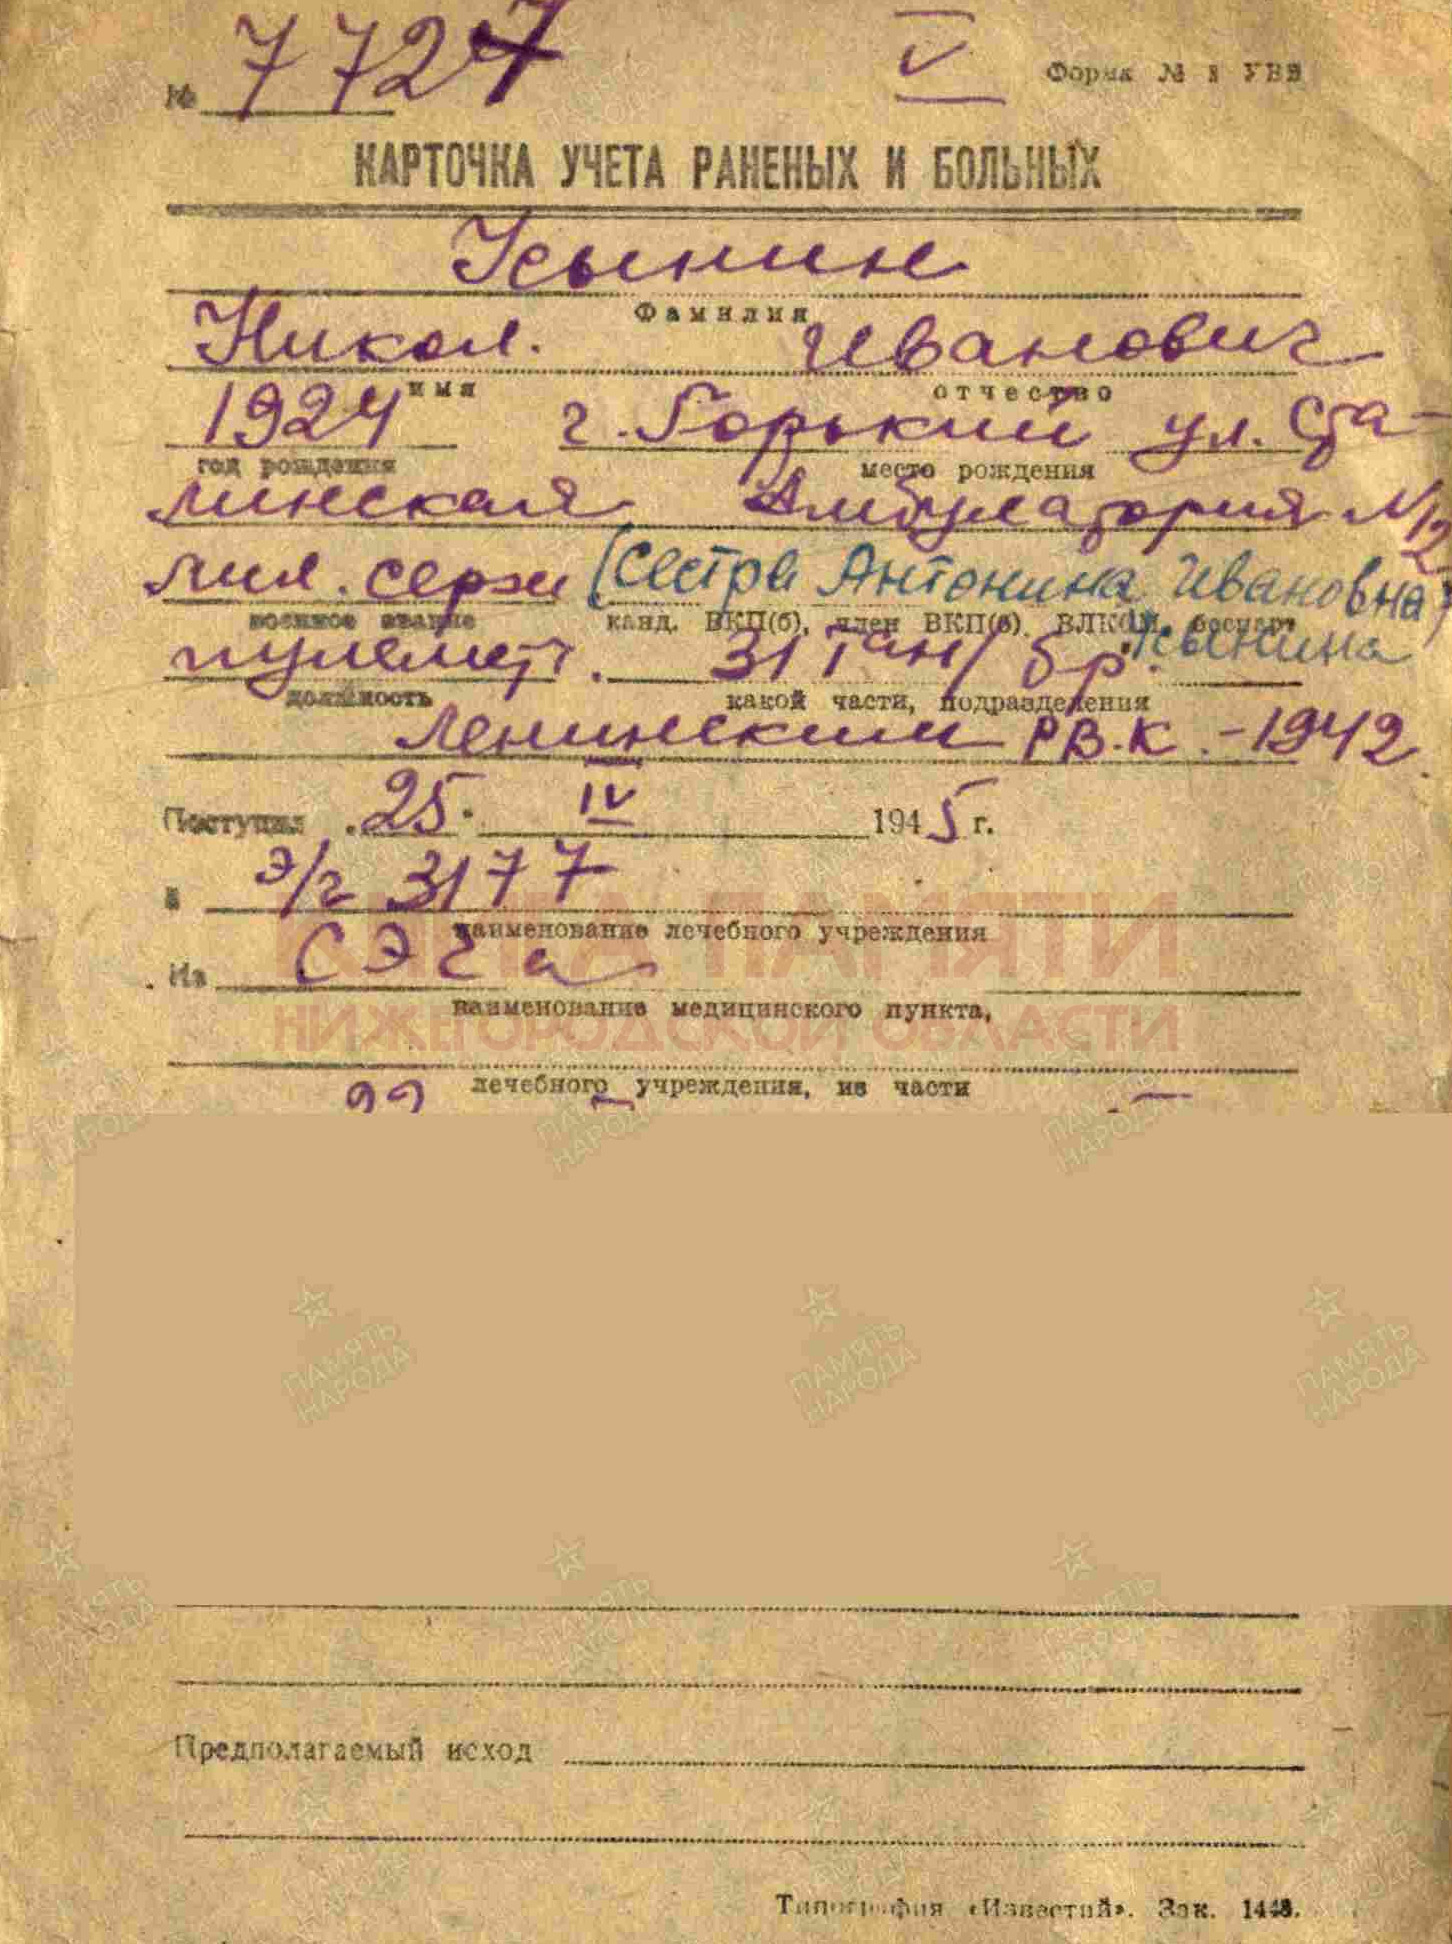 № 7727 V Форма № 1 УВВ
КАРТОЧКА УЧЕТА РАНЕНЫХ И БОЛЬНЫХ
Усынин
Фамилия
Никол. Иванович
имя отчество
1924 г. Горький ул. Ста-
год рождения место рождения
линская Амбулатория №12
мл. серж (сестра Антонина Ивановна
военное звание канд. ВКП(б), член ВКП(б). ВЛКСМ, беспарт
Усынина)
пулемет. 31 Тан/бр.
должность какой части, подразделения
Ленинским РВ.К. - 1942
Поступил 25. IV 1945 г.
в э/г 3177
наименование лечебного учреждения
КНИГА ПАМЯТИ
Из СЭГа
наименование медицинского пункта,
НИЖЕГОРОДСКОЙ ОБЛАСТИ
лечебного учреждения, из части
ПАМЯТЬ НАРОДА
Предполагаемый исход
Типография «Известий». Зак. 1448.